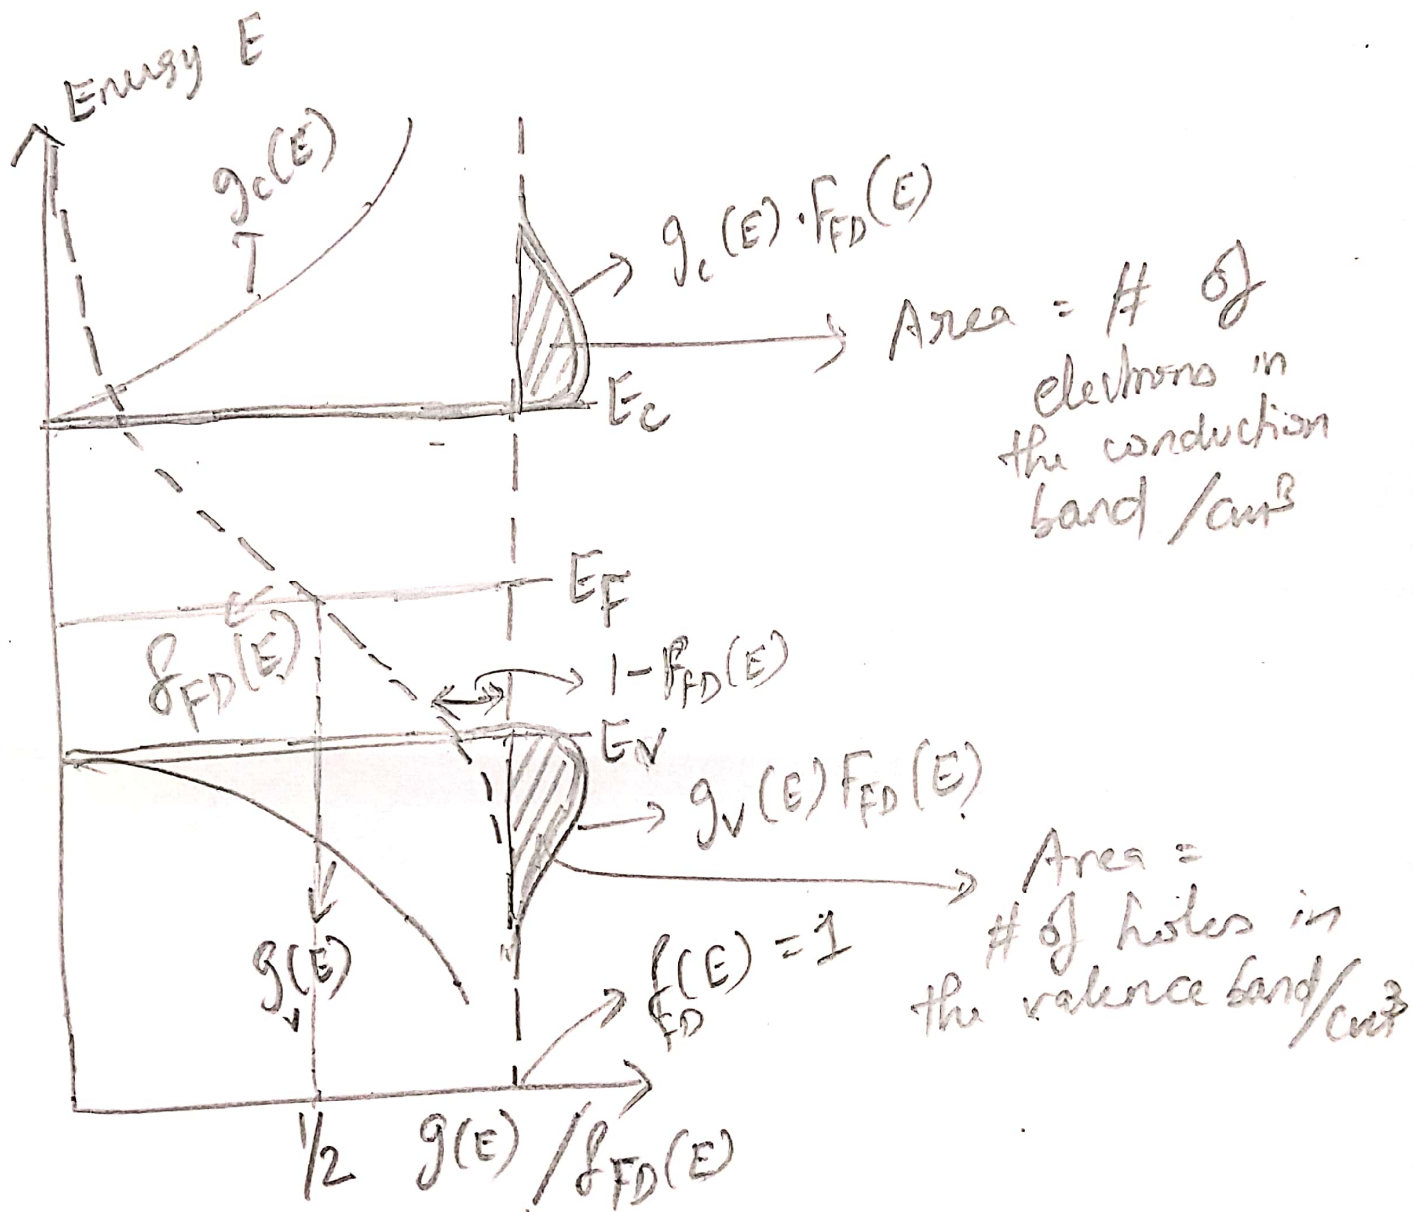 Energy E
g_c(E)
g_c(E).F_FD(E)
Area = # of
electrons in
the conduction
band /cm³
E_c
E_F
f_FD(E)
1-f_FD(E)
E_v
g_v(E) F_FD(E)
Area =
# of holes in
the valence band/cm³
g_v(E)
f_FD(E) = 1
1/2
g(E) / f_FD(E)